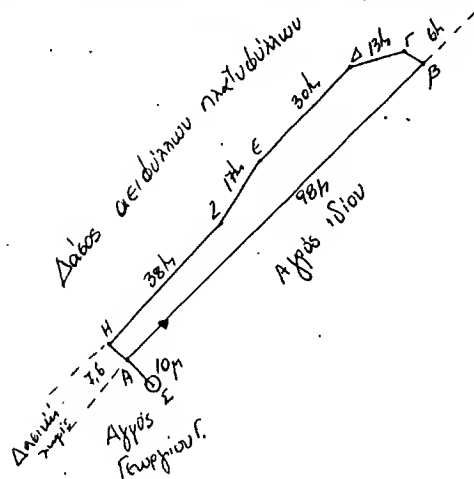 Δάσος αειφύλλων πλατυφύλλων
Δ
13μ
Γ
6μ
Β
30μ
Ε
17μ
98μ
Ζ
Αγρός ιδίου
38μ
Η
7,6
Α
10μ
Σ
Δασική
Αγρός
Γεωργίου Γ.